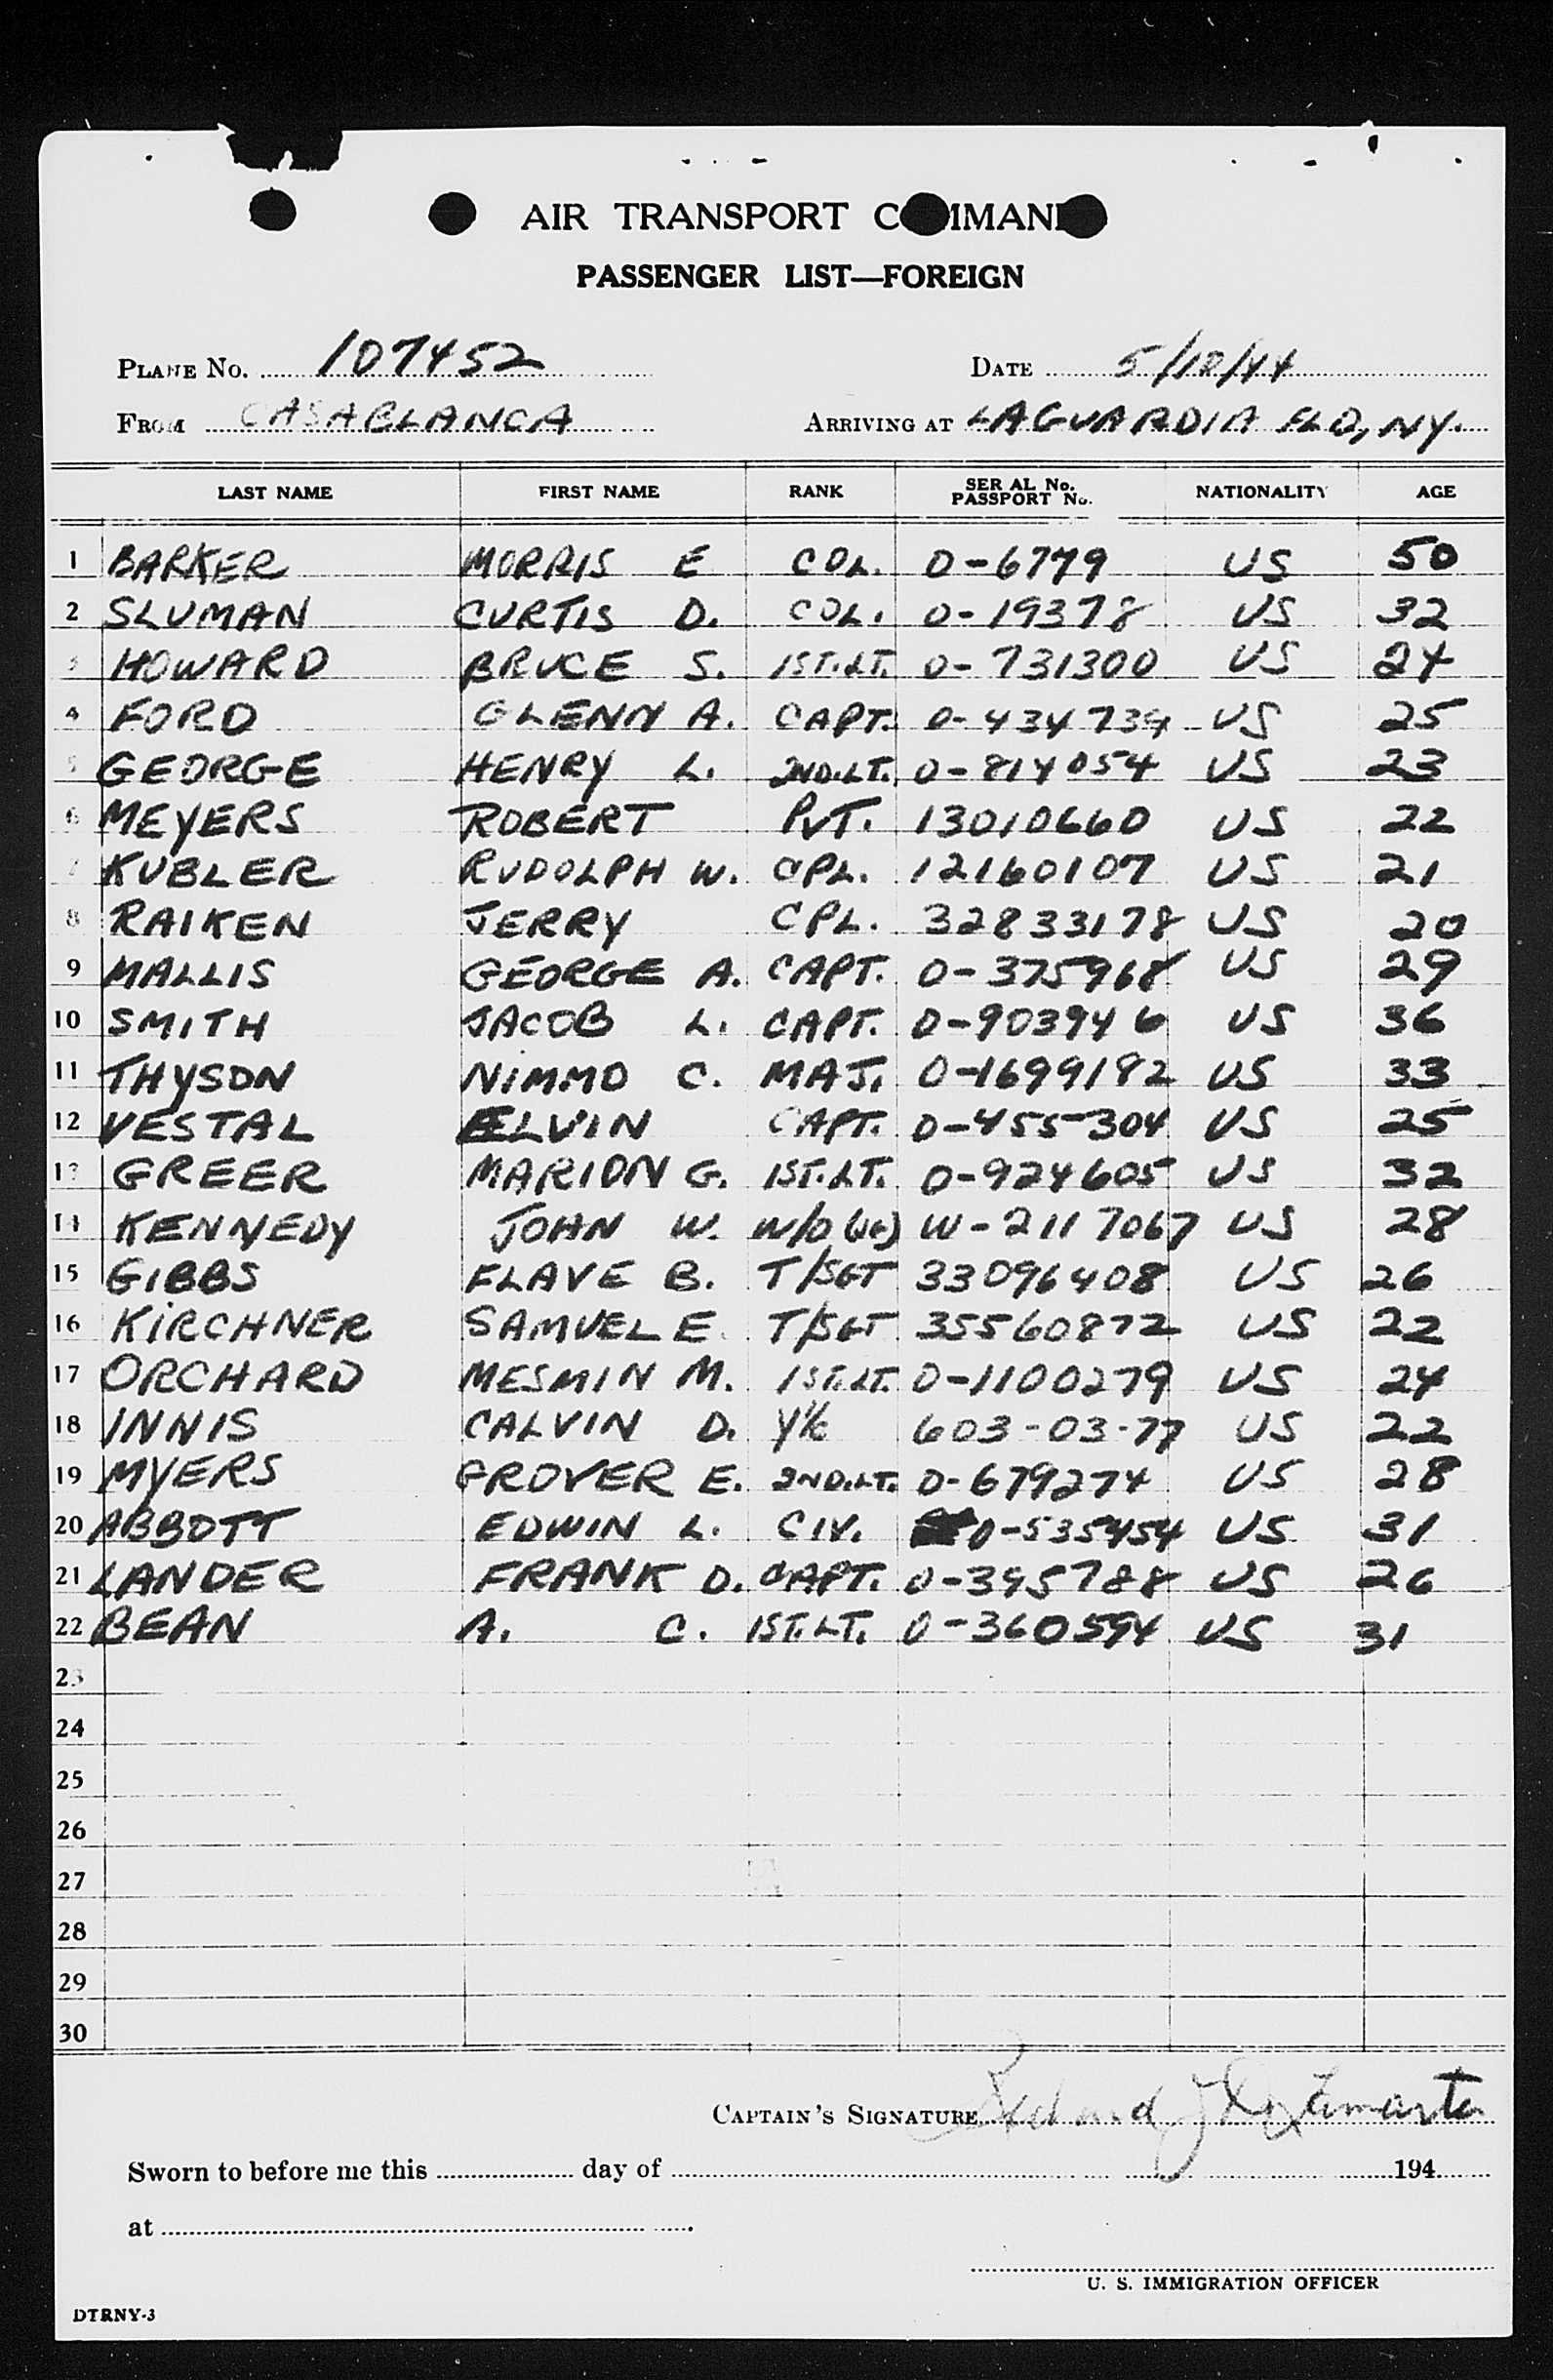 AIR TRANSPORT COMMAND
PASSENGER LIST—FOREIGN
PLANE No. 107452 DATE 5/10/44
FROM CASABLANCA ARRIVING AT LAGUARDIA FLD, NY.
LAST NAME FIRST NAME RANK SERIAL No. PASSPORT No. NATIONALITY AGE
1 BARKER MORRIS E COL. O-6779 US 50
2 SLUMAN CURTIS D. COL. O-19378 US 32
3 HOWARD BRUCE S. 1ST.LT. O-731300 US 24
4 FORD GLENN A. CAPT. O-434739 US 25
5 GEORGE HENRY L. 2ND.LT. O-814054 US 23
6 MEYERS ROBERT PVT. 13010660 US 22
7 KUBLER RUDOLPH W. CPL. 12160107 US 21
8 RAIKEN JERRY CPL. 32833178 US 20
9 MALLIS GEORGE A. CAPT. O-375968 US 29
10 SMITH JACOB L. CAPT. O-903946 US 36
11 THYSON NIMMO C. MAJ. O-1699182 US 33
12 VESTAL ELVIN CAPT. O-455304 US 25
13 GREER MARION G. 1ST.LT. O-924605 US 32
14 KENNEDY JOHN W. W/O (JG) W-2117067 US 28
15 GIBBS FLAVE B. T/SGT 33096408 US 26
16 KIRCHNER SAMUEL E. T/SGT 35560872 US 22
17 ORCHARD MESMIN M. 1ST.LT. O-1100279 US 24
18 INNIS CALVIN D. Y1/c 603-03-77 US 22
19 MYERS GROVER E. 2ND.LT. O-679274 US 28
20 ABBOTT EDWIN L. CIV. O-535454 US 31
21 LANDER FRANK D. CAPT. O-395788 US 26
22 BEAN A. C. 1ST.LT. O-360594 US 31
23
24
25
26
27
28
29
30
CAPTAIN'S SIGNATURE Richard J
Sworn to before me this day of 194
at
U. S. IMMIGRATION OFFICER
DTRNY-3